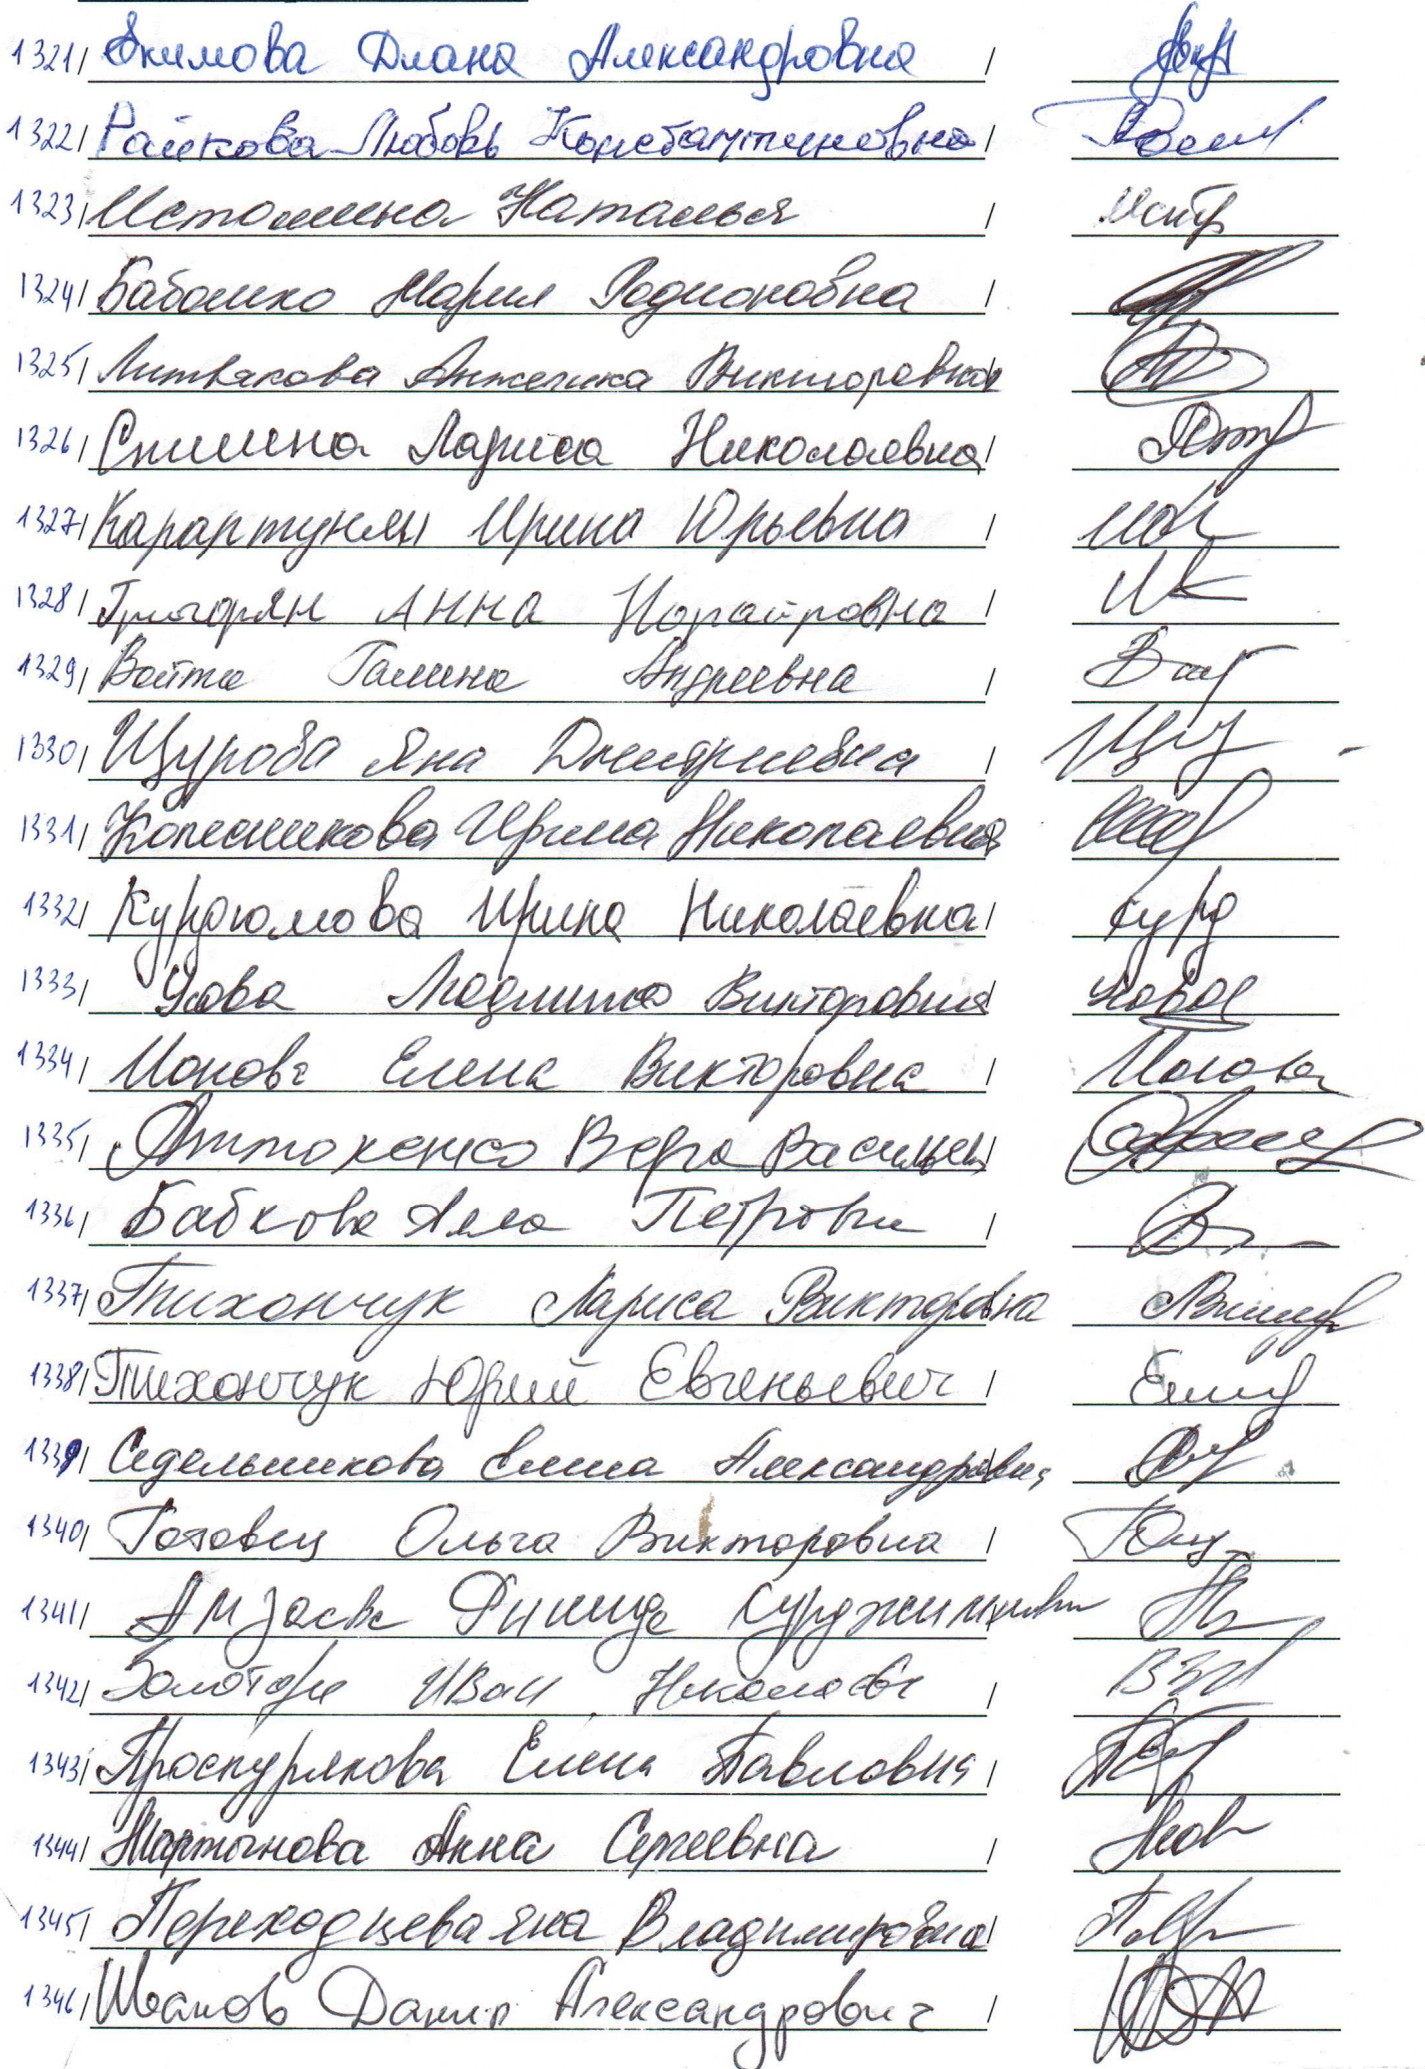 1321/ Якимова Диана Александровна /
1322/ Райкова Любовь Константиновна /
1323/ Истомина Наталья /
1324/ Мария Родионовна /
1325/ Литвякова Анжелика Викторовна
1326/ Спицина Лариса Николаевна /
1327/ Ирина Юрьевна /
1328/ Григорян Анна Норайровна /
1329/ Войта Галина Андреевна /
1330/ Щурова Яна Дмитриевна /
1331/ Колесникова Ирина Николаевна
1332/ Курдюмова Ирина Николаевна /
1333/ Усова Людмила Викторовна /
1334/ Ионова Елена Викторовна /
1335/ Вера Васильев /
1336/ Бабкова Алла Петровн /
1337/ Тихончук Лариса Викторовна
1338/ Тихончук Юрий Евгеньевич /
1339/ Седельникова Елена Александровна
1340/ Готовец Ольга Викторовна /
1341/
1342/ Иван /
1343/ Проскурякова Елена Павловна /
1344/ Мартынова Анна Сергеевна /
1345/ Переходцева Яна Владимировна /
1346/ Иванов Данил Александрович /